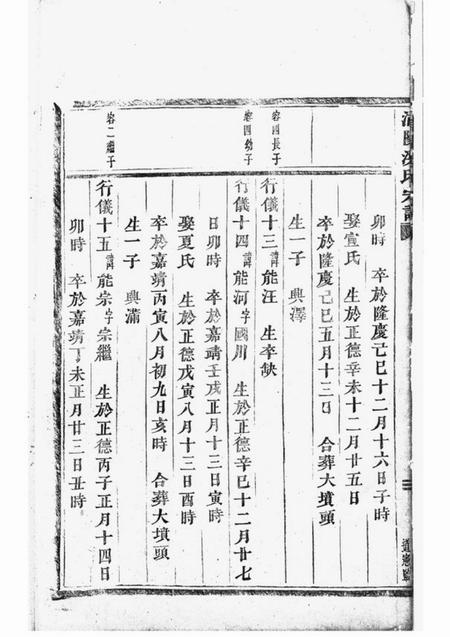 氏宗譜
卯時 卒於隆慶己巳十二月十六日子時
娶宣氏 生於正德辛未十二月廿五日
卒於隆慶己巳五月十三日 合葬大墳頭
生一子 興澤
容四長子
行儀十三諱能汪 生卒缺
容四幼子
行儀十四諱能河字國川 生於正德辛巳十二月廿七
日卯時 卒於嘉靖壬戌正月十三日寅時
娶夏氏 生於正德戊寅八月十三日酉時
卒於嘉靖丙寅八月初九日亥時 合葬大墳頭
生一子 興滿
容二繼子
行儀十五諱能宗字宗繼 生於正德丙子正月十四日
卯時 卒於嘉靖丁未正月廿三日丑時